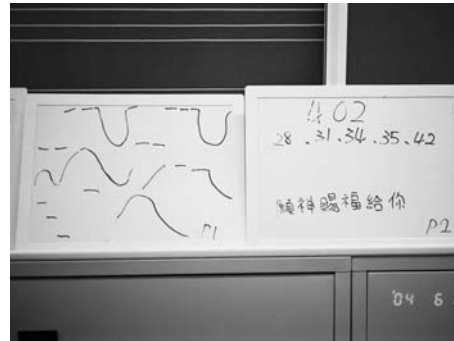 P1
402
28.31.34.35.42
願神賜福給你
P2
'04 6